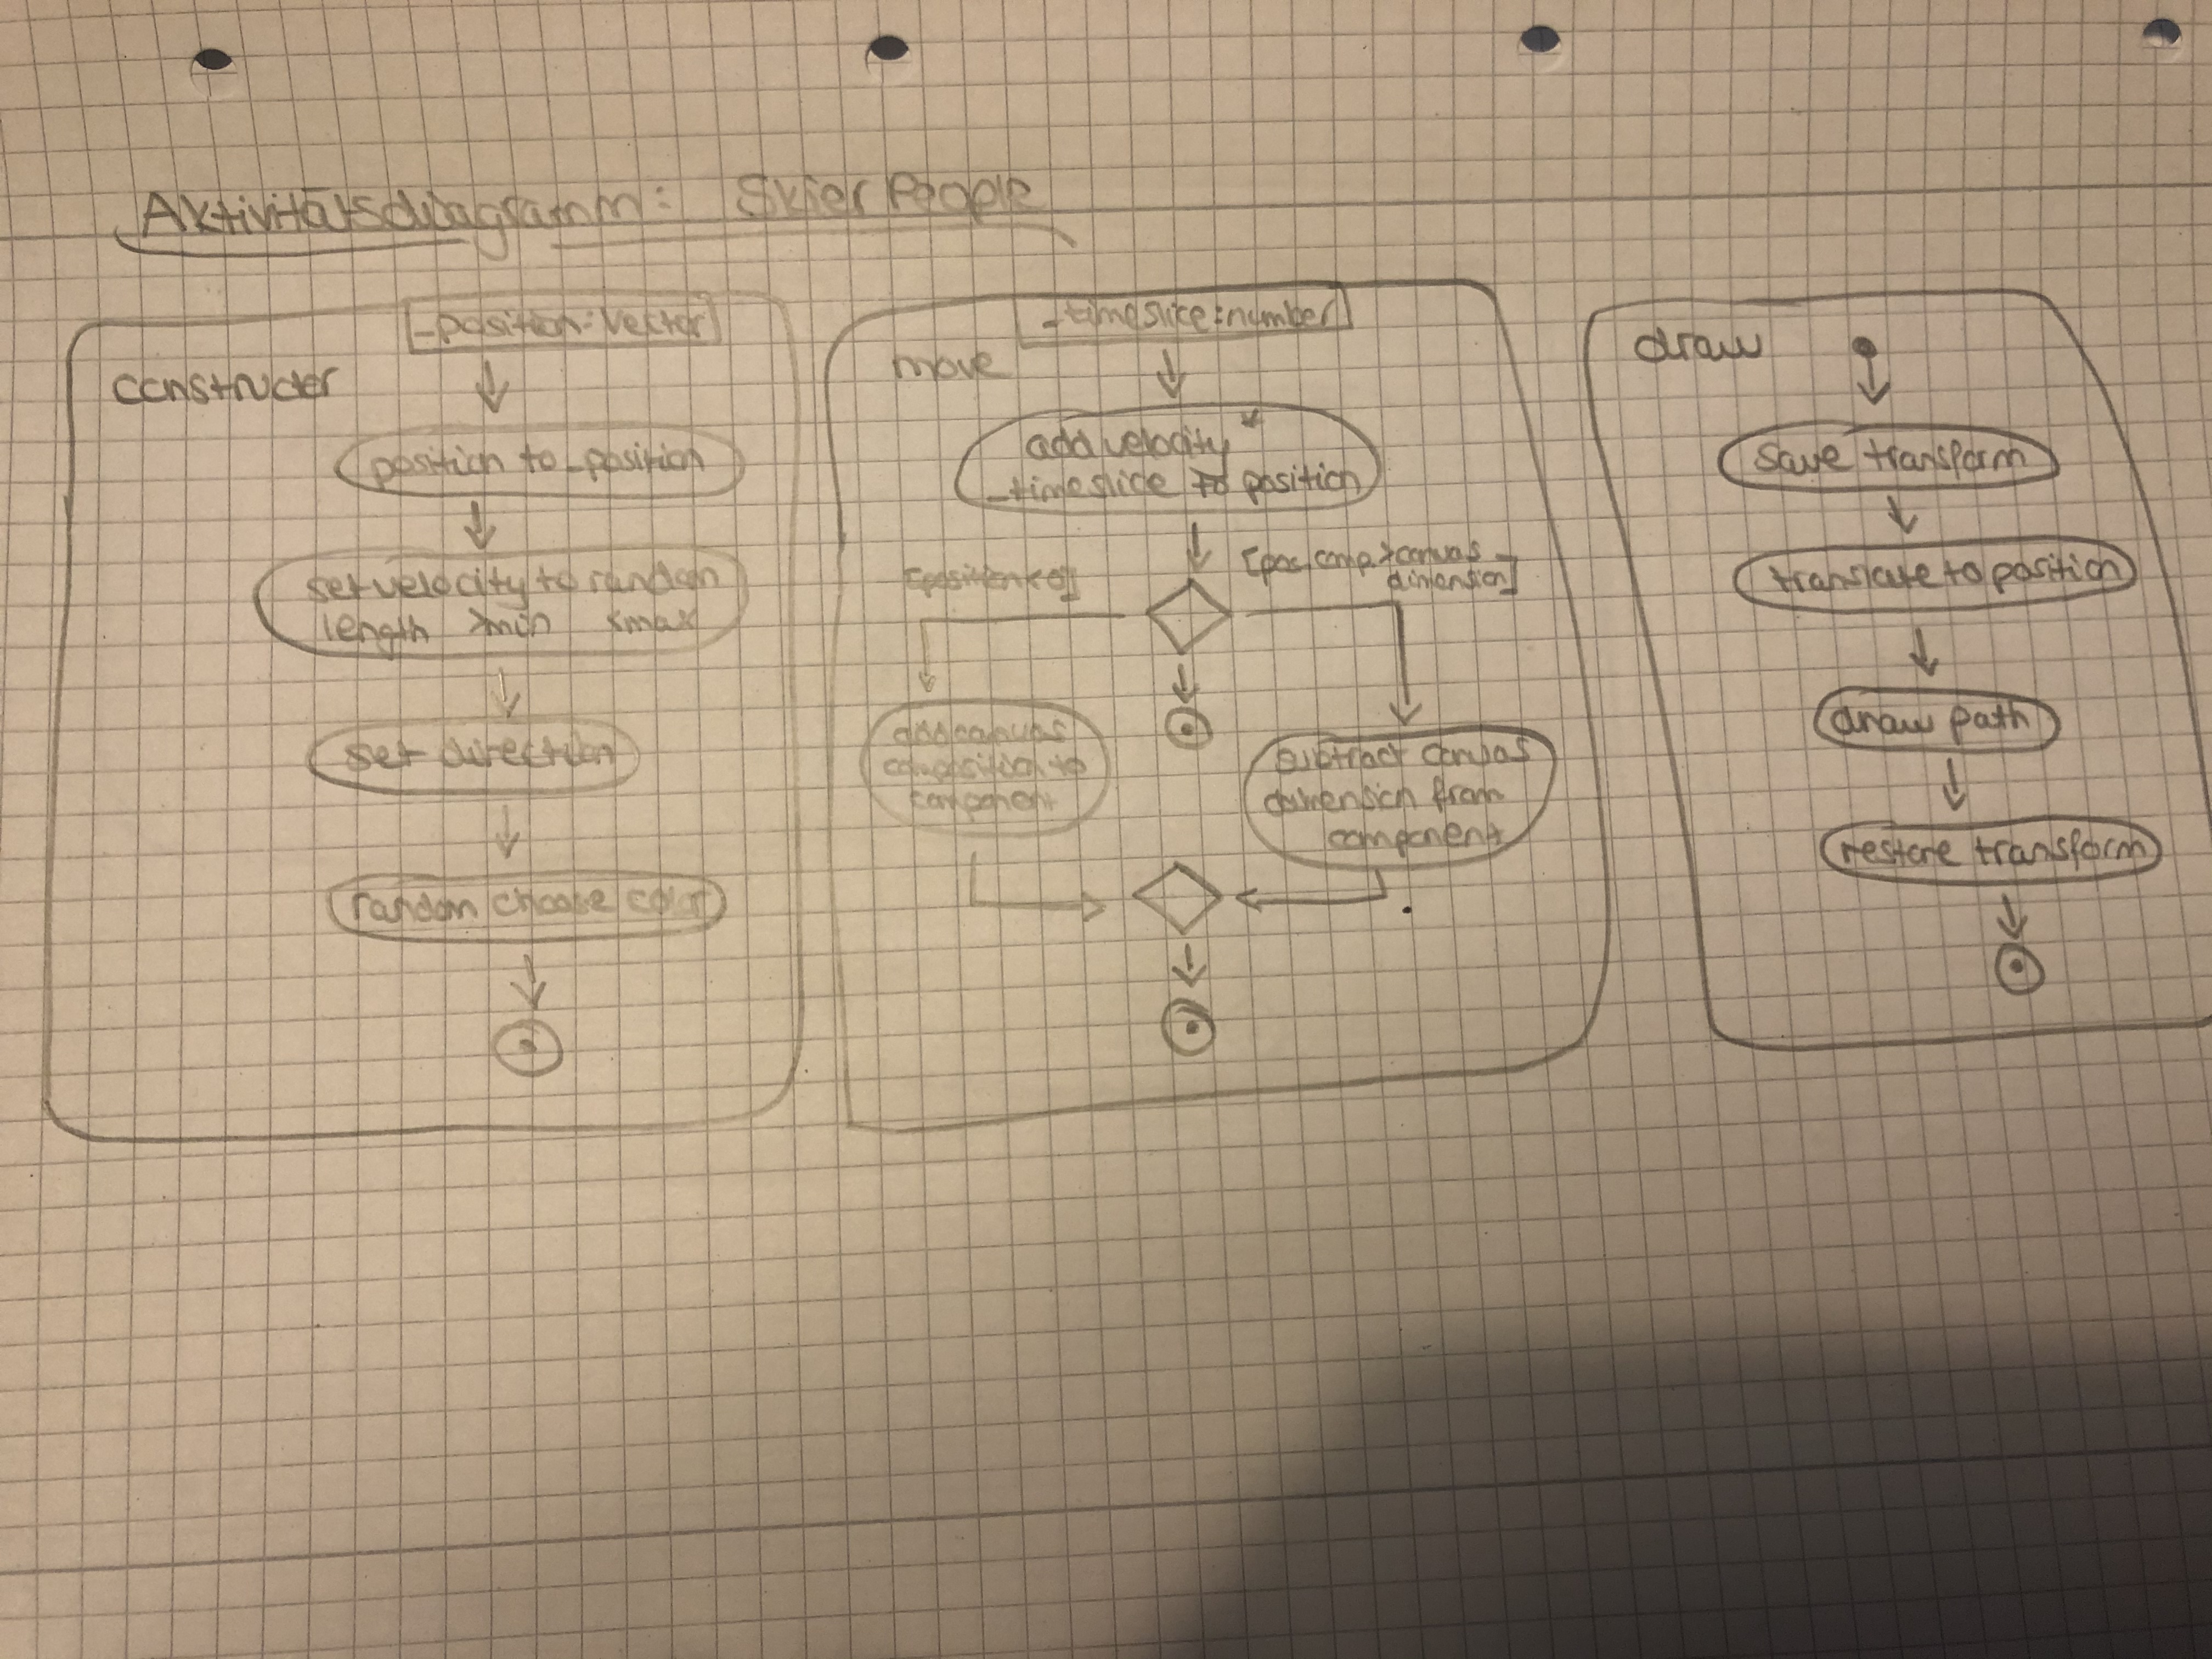 Aktivitätsdiagramm: Skier People
constructor
_position: Vector
position to _position
set velocity to random
length >min <max
set direction
random choose color
move
_timeslice: number
add velocity *
_timeslice to position
[position < 0]
[pos.comp > canvas
dimension]
add canvas
composition to
component
subtract canvas
dimension from
component
draw
save transform
translate to position
draw path
restore transform